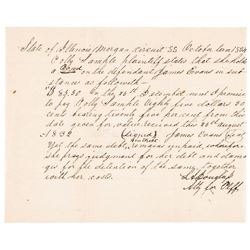 State of Illinois Morgan circuit SS October term 1834
Polly Sample plaintiff states that she holds
a note on the defendant James Evans in sub-
stance as followeth-
$85.50 On the 25th December next I promise
to pay Polly Sample Eighty five dollars 50
cents bearing twenty five per cent from this
date given for value received this 25th august
1832 (Signed) James Evans (seal)
Yet the same debt remains unpaid, wherefore
she prays judgment for her debt and dama-
ges for the detention of the same together
with her costs.
S A Douglass
Atty for Plff